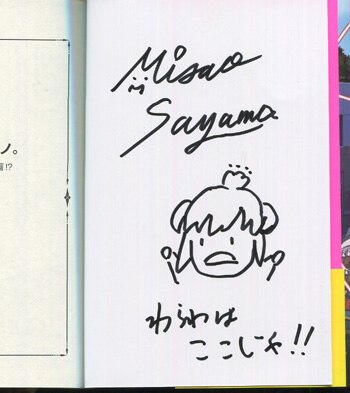 ノ。
!?
Misao
Sayama
わらわは
ここじゃ!!